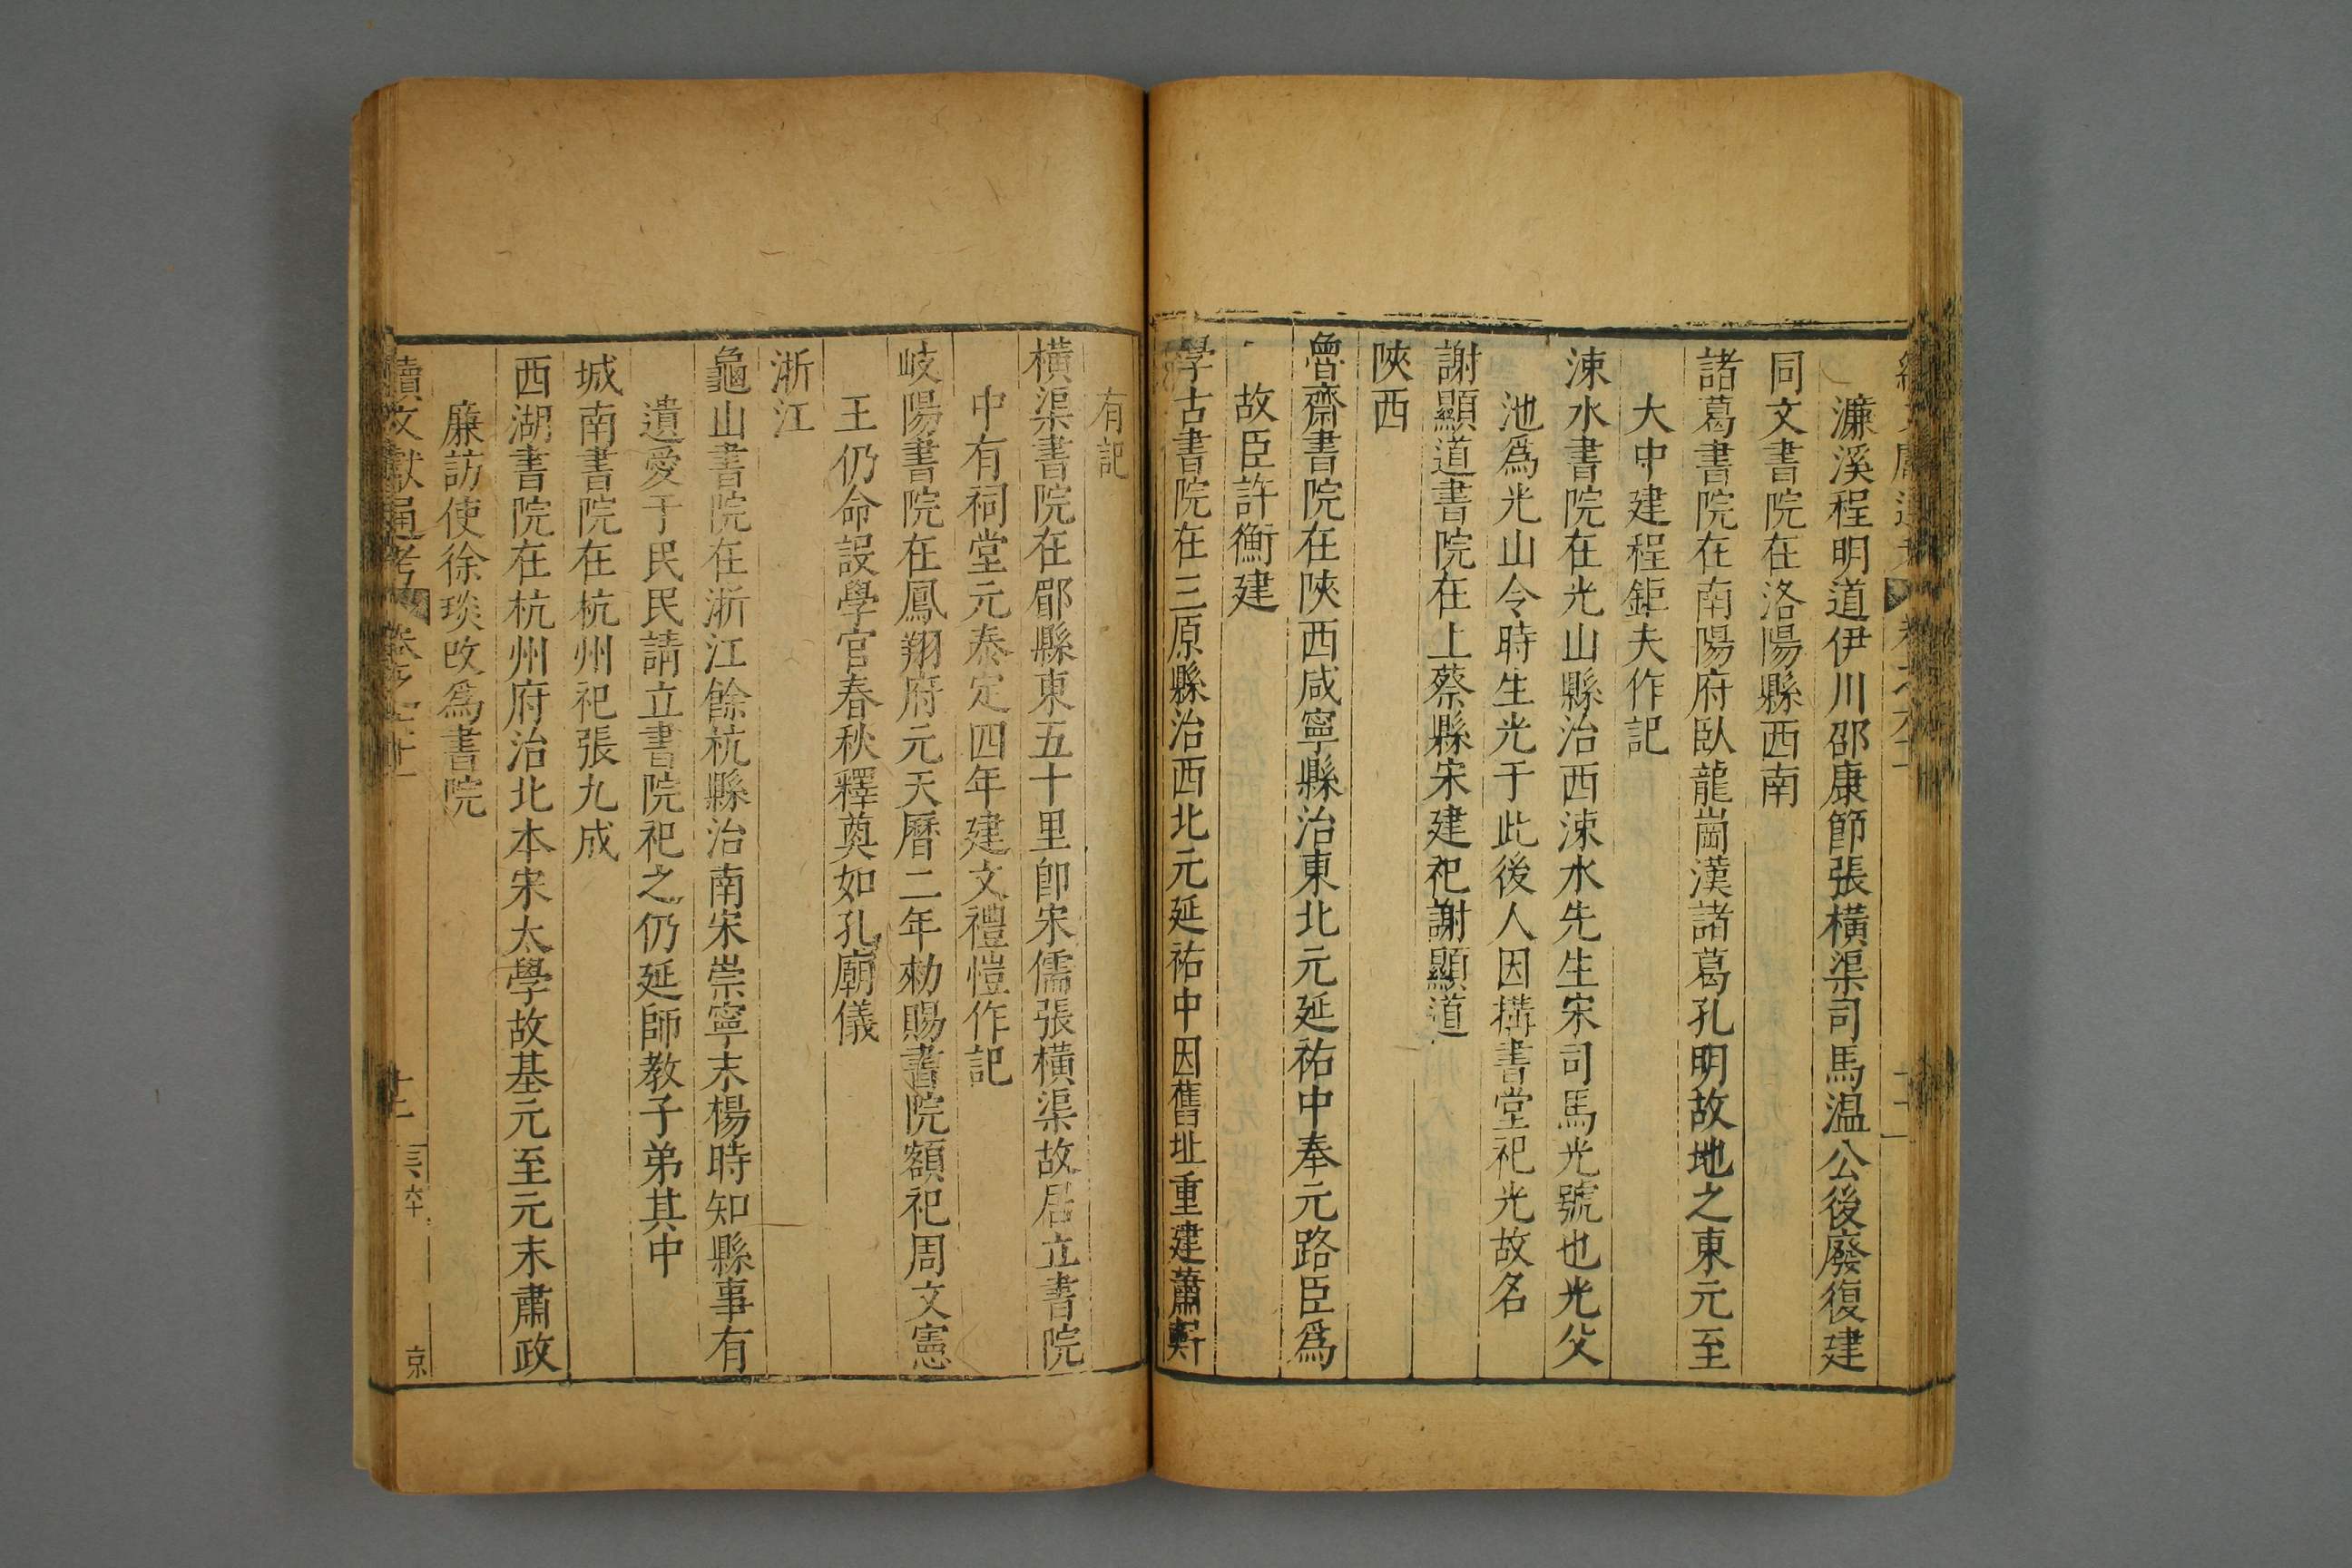 濂溪程明道伊川邵康節張橫渠司馬温公後廢復建
同文書院在洛陽縣西南
諸葛書院在南陽府臥龍崗漢諸葛孔明故地之東元至
大中建程鉅夫作記
涑水書院在光山縣治西涑水先生宋司馬光號也光父
池爲光山令時生光于此後人因構書堂祀光故名
謝顯道書院在上蔡縣宋建祀謝顯道
陝西
魯齋書院在陝西咸寧縣治東北元延祐中奉元路臣爲
故臣許衡建
學古書院在三原縣治西北元延祐中因舊址重建蕭㪺
有記
橫渠書院在郿縣東五十里卽宋儒張橫渠故居立書院
中有祠堂元泰定四年建文禮愷作記
岐陽書院在鳳翔府元天曆二年勑賜書院額祀周文憲
王仍命設學官春秋釋奠如孔廟儀
浙江
龜山書院在浙江餘杭縣治南宋崇寧末楊時知縣事有
遺愛于民民請立書院祀之仍延師教子弟其中
城南書院在杭州祀張九成
西湖書院在杭州府治北本宋太學故基元至元末肅政
廉訪使徐琰改爲書院
續文獻通考
京